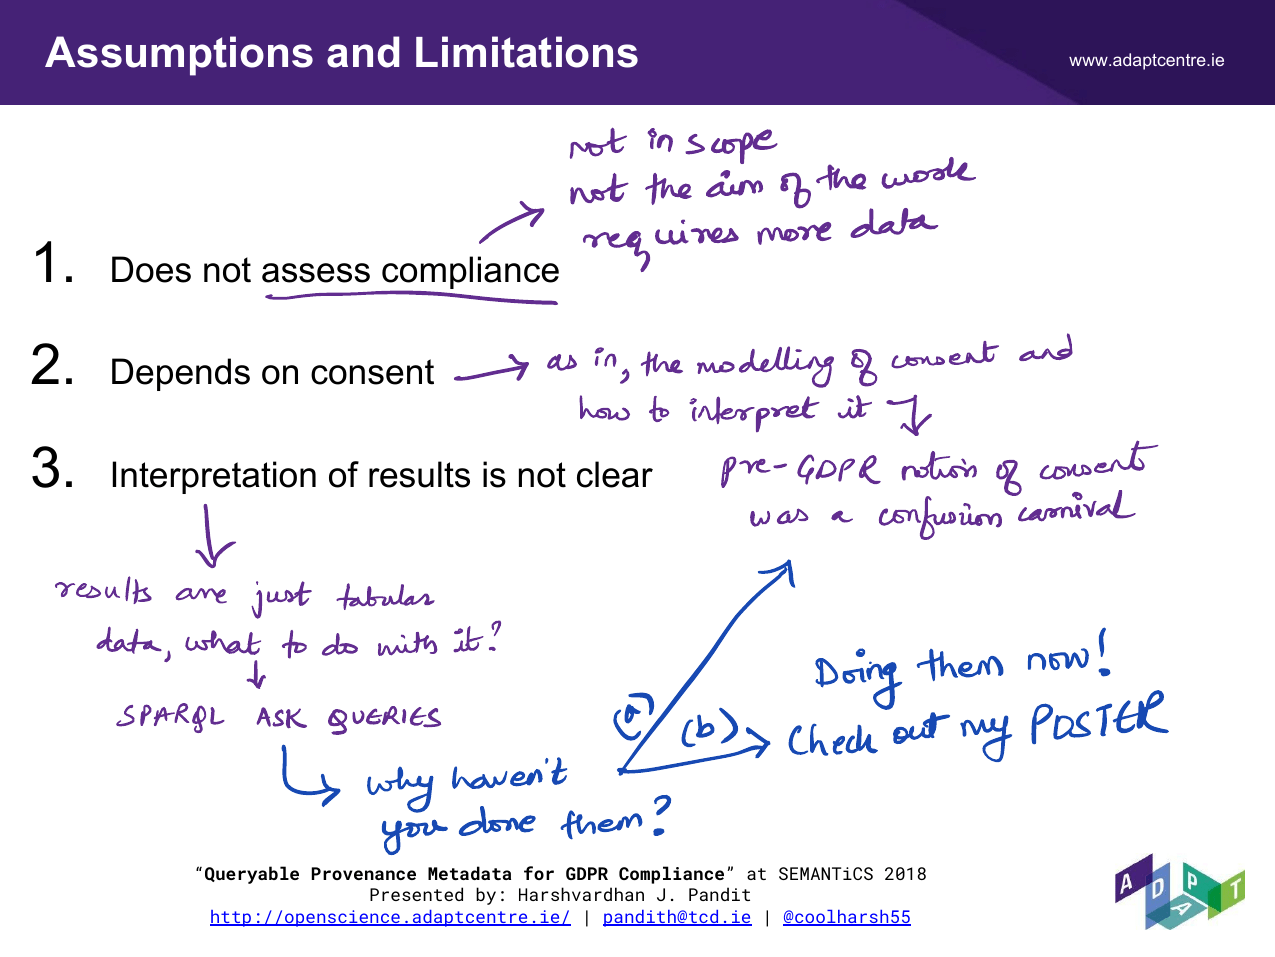 Assumptions and Limitations
www.adaptcentre.ie
not in scope
not the aim of the work
requires more data
1. Does not assess compliance
2. Depends on consent
as in, the modelling of consent and
how to interpret it
3. Interpretation of results is not clear
pre-GDPR notion of consent
was a confusion carnival
results are just tabular
data, what to do with it?
SPARQL ASK QUERIES
why haven't
you done them?
(a)
(b)
Doing them now!
Check out my POSTER
“Queryable Provenance Metadata for GDPR Compliance” at SEMANTiCS 2018
Presented by: Harshvardhan J. Pandit
http://openscience.adaptcentre.ie/ | pandith@tcd.ie | @coolharsh55
ADAPT